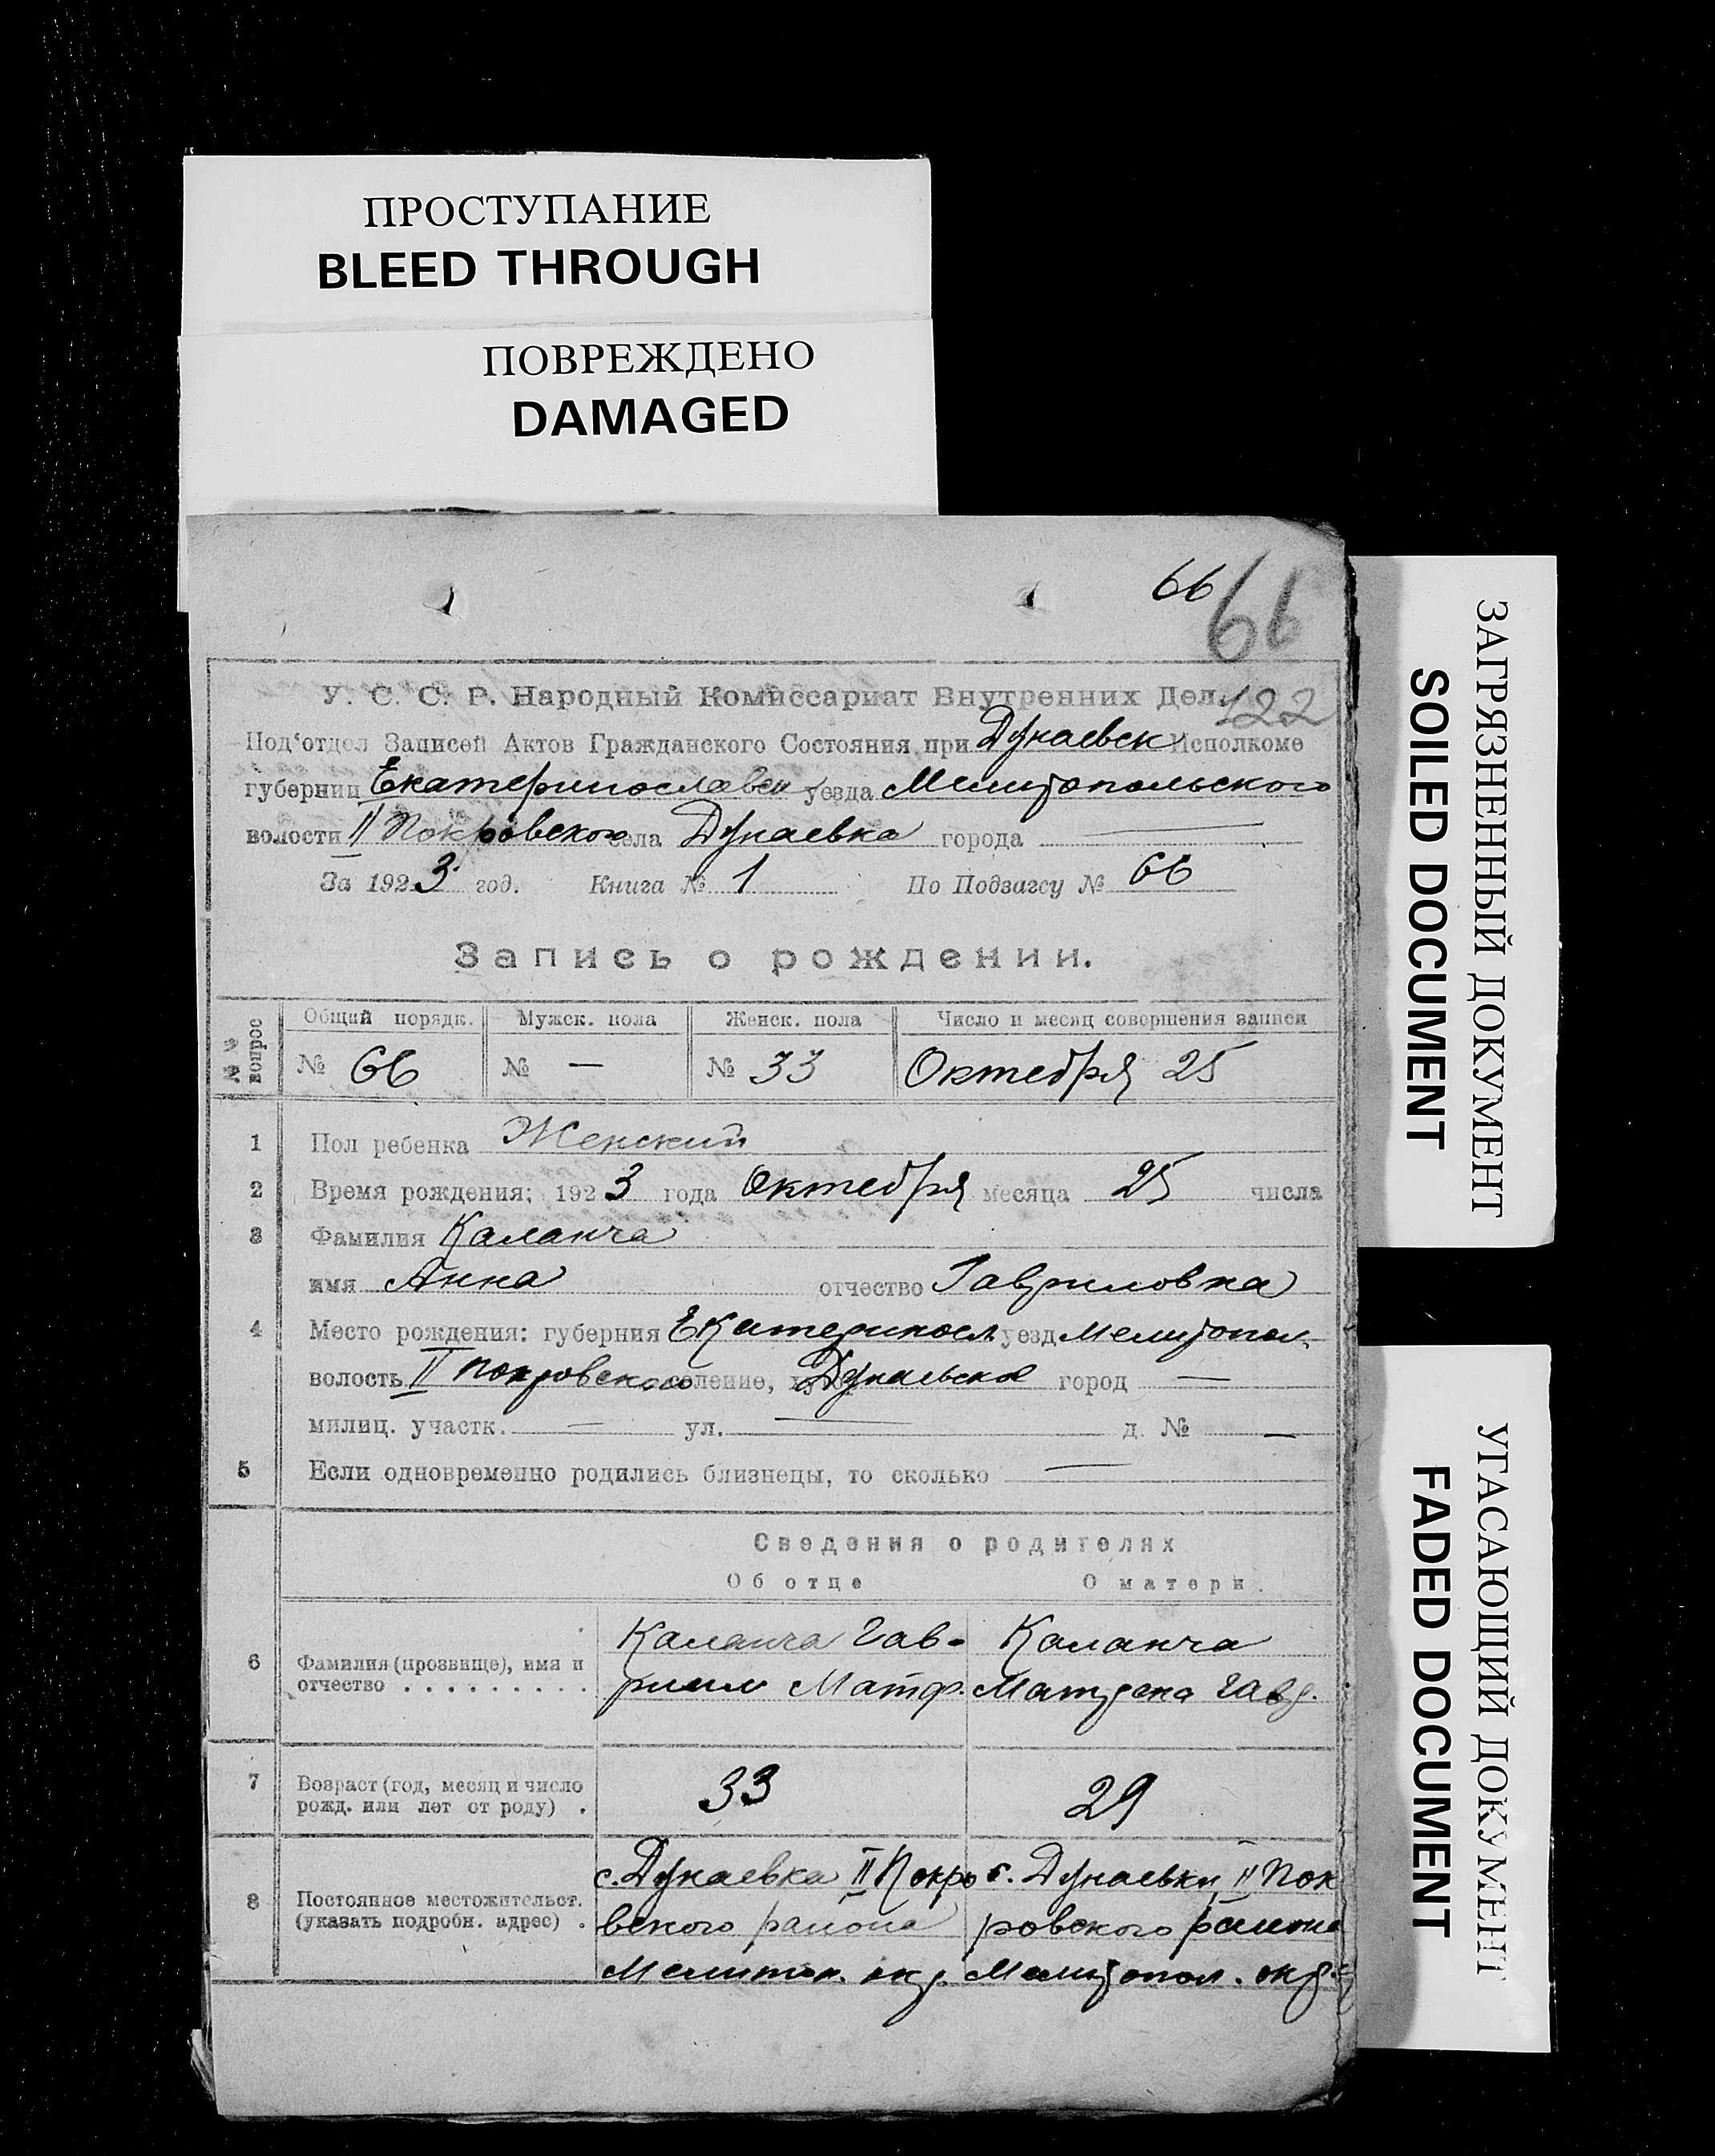 ПРОСТУПАНИЕ
BLEED THROUGH
ПОВРЕЖДЕНО
DAMAGED
ЗАГРЯЗНЕННЫЙ ДОКУМЕНТ
SOILED DOCUMENT
УГАСАЮЩИЙ ДОКУМЕНТ
FADED DOCUMENT
66
66
У. С. С. Р. Народный Комиссариат Внутренних Дел.
122
Под'отдел Записей Актов Гражданского Состояния при Дунаевск Исполкоме
губернии Екатеринославск уезда Мелитопольского
волости II Покровского села Дунаевка города —
За 1923 год. Книга № 1 По Подзагсу № 66
Запись о рождении.
№№ вопрос
Общий порядк. Мужск. пола Женск. пола Число и месяц совершения записи
№ 66 № — № 33 Октебря 25
1 Пол ребенка Женский
2 Время рождения; 1923 года Октебря месяца 25 числа
3 Фамилия Каланча
имя Анна отчество Гавриловна
4 Место рождения: губерния Екатериносл уезд Мелитопол.
волость II Покровского селение, Дунаевское город —
милиц. участк. — ул. — д. № —
5 Если одновременно родились близнецы, то сколько —
Сведения о родителях
Об отце О матери.
6 Фамилия (прозвище), имя и
отчество . . . . . . . . .
Каланча Гав-
риил Матф.
Каланча
Матрена Гавр.
7 Возраст (год, месяц и число
рожд. или лет от роду) .
33 29
8 Постоянное местожительст.
(указать подробн. адрес) .
с. Дунаевка II Покро
вского района
Мелитоп. окр.
с. Дунаевки II Пок
ровского района
Мелитопол. окр.